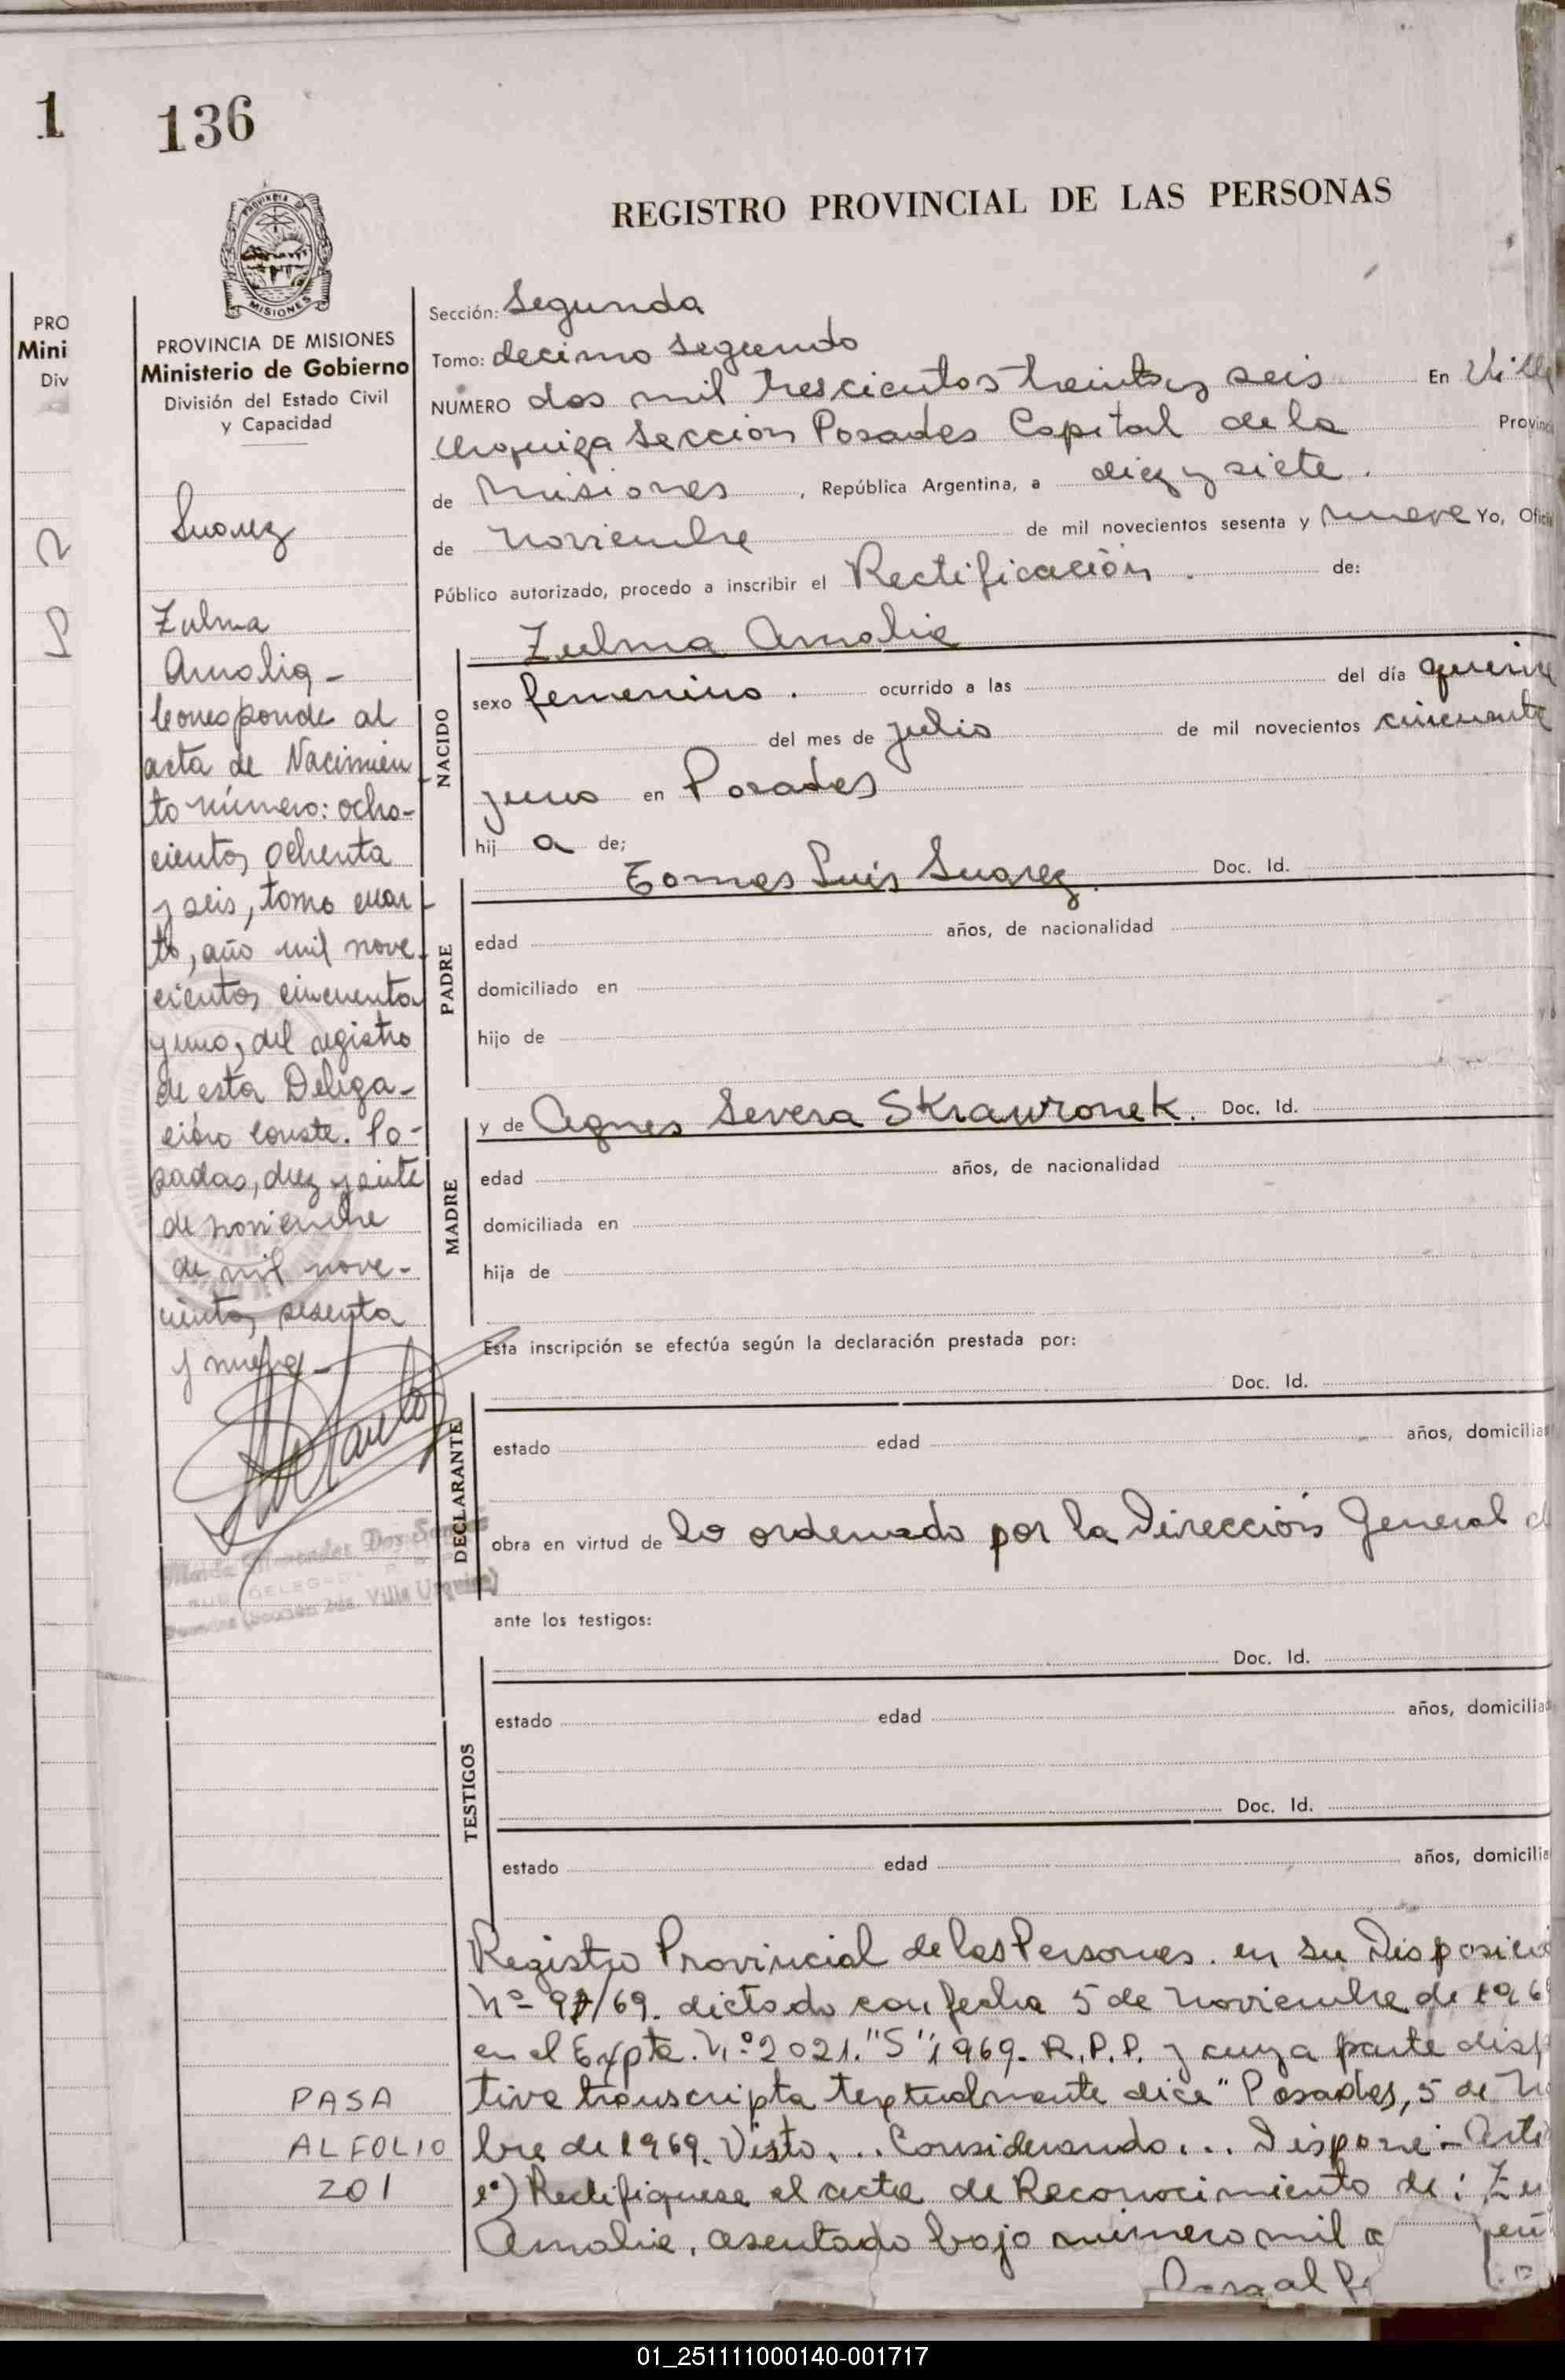 1
136
REGISTRO PROVINCIAL DE LAS PERSONAS
PROVINCIA DE
MISIONES
PRO
Mini
Div
PROVINCIA DE MISIONES
Ministerio de Gobierno
División del Estado Civil
y Capacidad
Suarez
Zulma
Amolia -
Corresponde al
acta de Nacimien
to número: ocho-
cientos ochenta
y seis, tomo cuar
to, año mil nove-
cientos cincuenta
y uno, del registro
de esta Delega-
ción conste. Po-
sadas, diez y siete
de noviembre
de mil nove-
cientos sesenta
y nueve -
Villa Urquiza)
PASA
AL FOLIO
201
Sección: Segunda
Tomo: decimo segundo
NUMERO dos mil trescientos treinta y seis En Villa
Urquiza Sección Posadas Capital de la Provincia
de Misiones, República Argentina, a diez y siete.
de noviembre de mil novecientos sesenta y nueve Yo, Oficial
Público autorizado, procedo a inscribir el Rectificación. de:
NACIDO
Zulma Amalia
sexo femenino. ocurrido a las del día quince
del mes de julio de mil novecientos cincuenta
y uno en Posadas
hij a de;
PADRE
Tomas Luis Suarez. Doc. Id.
edad años, de nacionalidad
domiciliado en
hijo de y
MADRE
y de Agnes Severa Skrawronek. Doc. Id.
edad años, de nacionalidad
domiciliada en
hija de
Esta inscripción se efectúa según la declaración prestada por:
DECLARANTE
Doc. Id.
estado edad años, domicilia
obra en virtud de lo ordenado por la Dirección General d
ante los testigos:
TESTIGOS
Doc. Id.
estado edad años, domicilia
Doc. Id.
estado edad años, domicilia
Registro Provincial de las Personas. en su Disposició
Nº 97/69. dictado con fecha 5 de noviembre de 1969
en el Expte. Nº 2021. "S" 1969. R.P.P. y cuya parte disp
tiva transcripta textualmente dice "Posadas, 5 de no
bre de 1969. Visto... Considerando... Dispone:- Arti
1º) Rectifiquese el acta de Reconocimiento de: Zu
Amalia, asentado bajo número mil
01_251111000140-001717